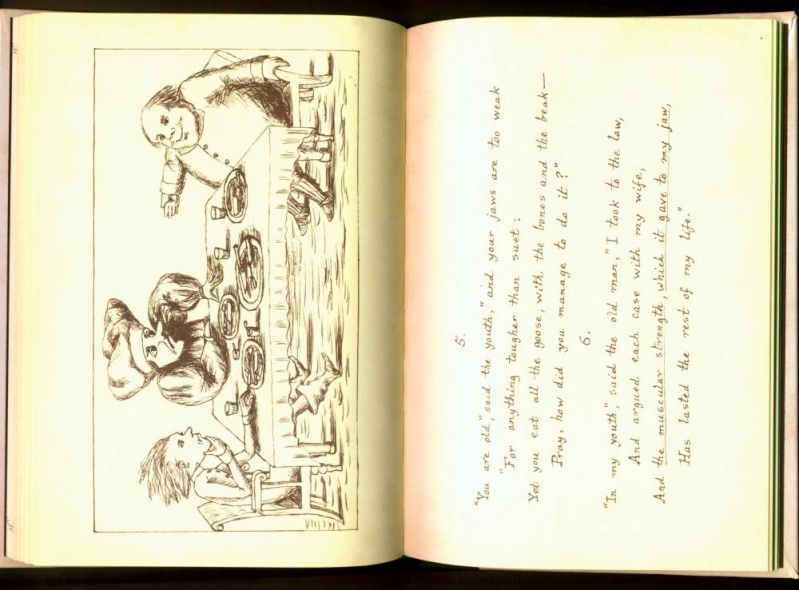 5.
"You are old," said the youth, "and your jaws are too weak
"For anything tougher than suet:
Yet you eat all the goose, with the bones and the beak—
Pray, how did you manage to do it?"
6.
"In my youth," said the old man, "I took to the law,
And argued each case with my wife,
And the muscular strength, which it gave to my jaw,
Has lasted the rest of my life."